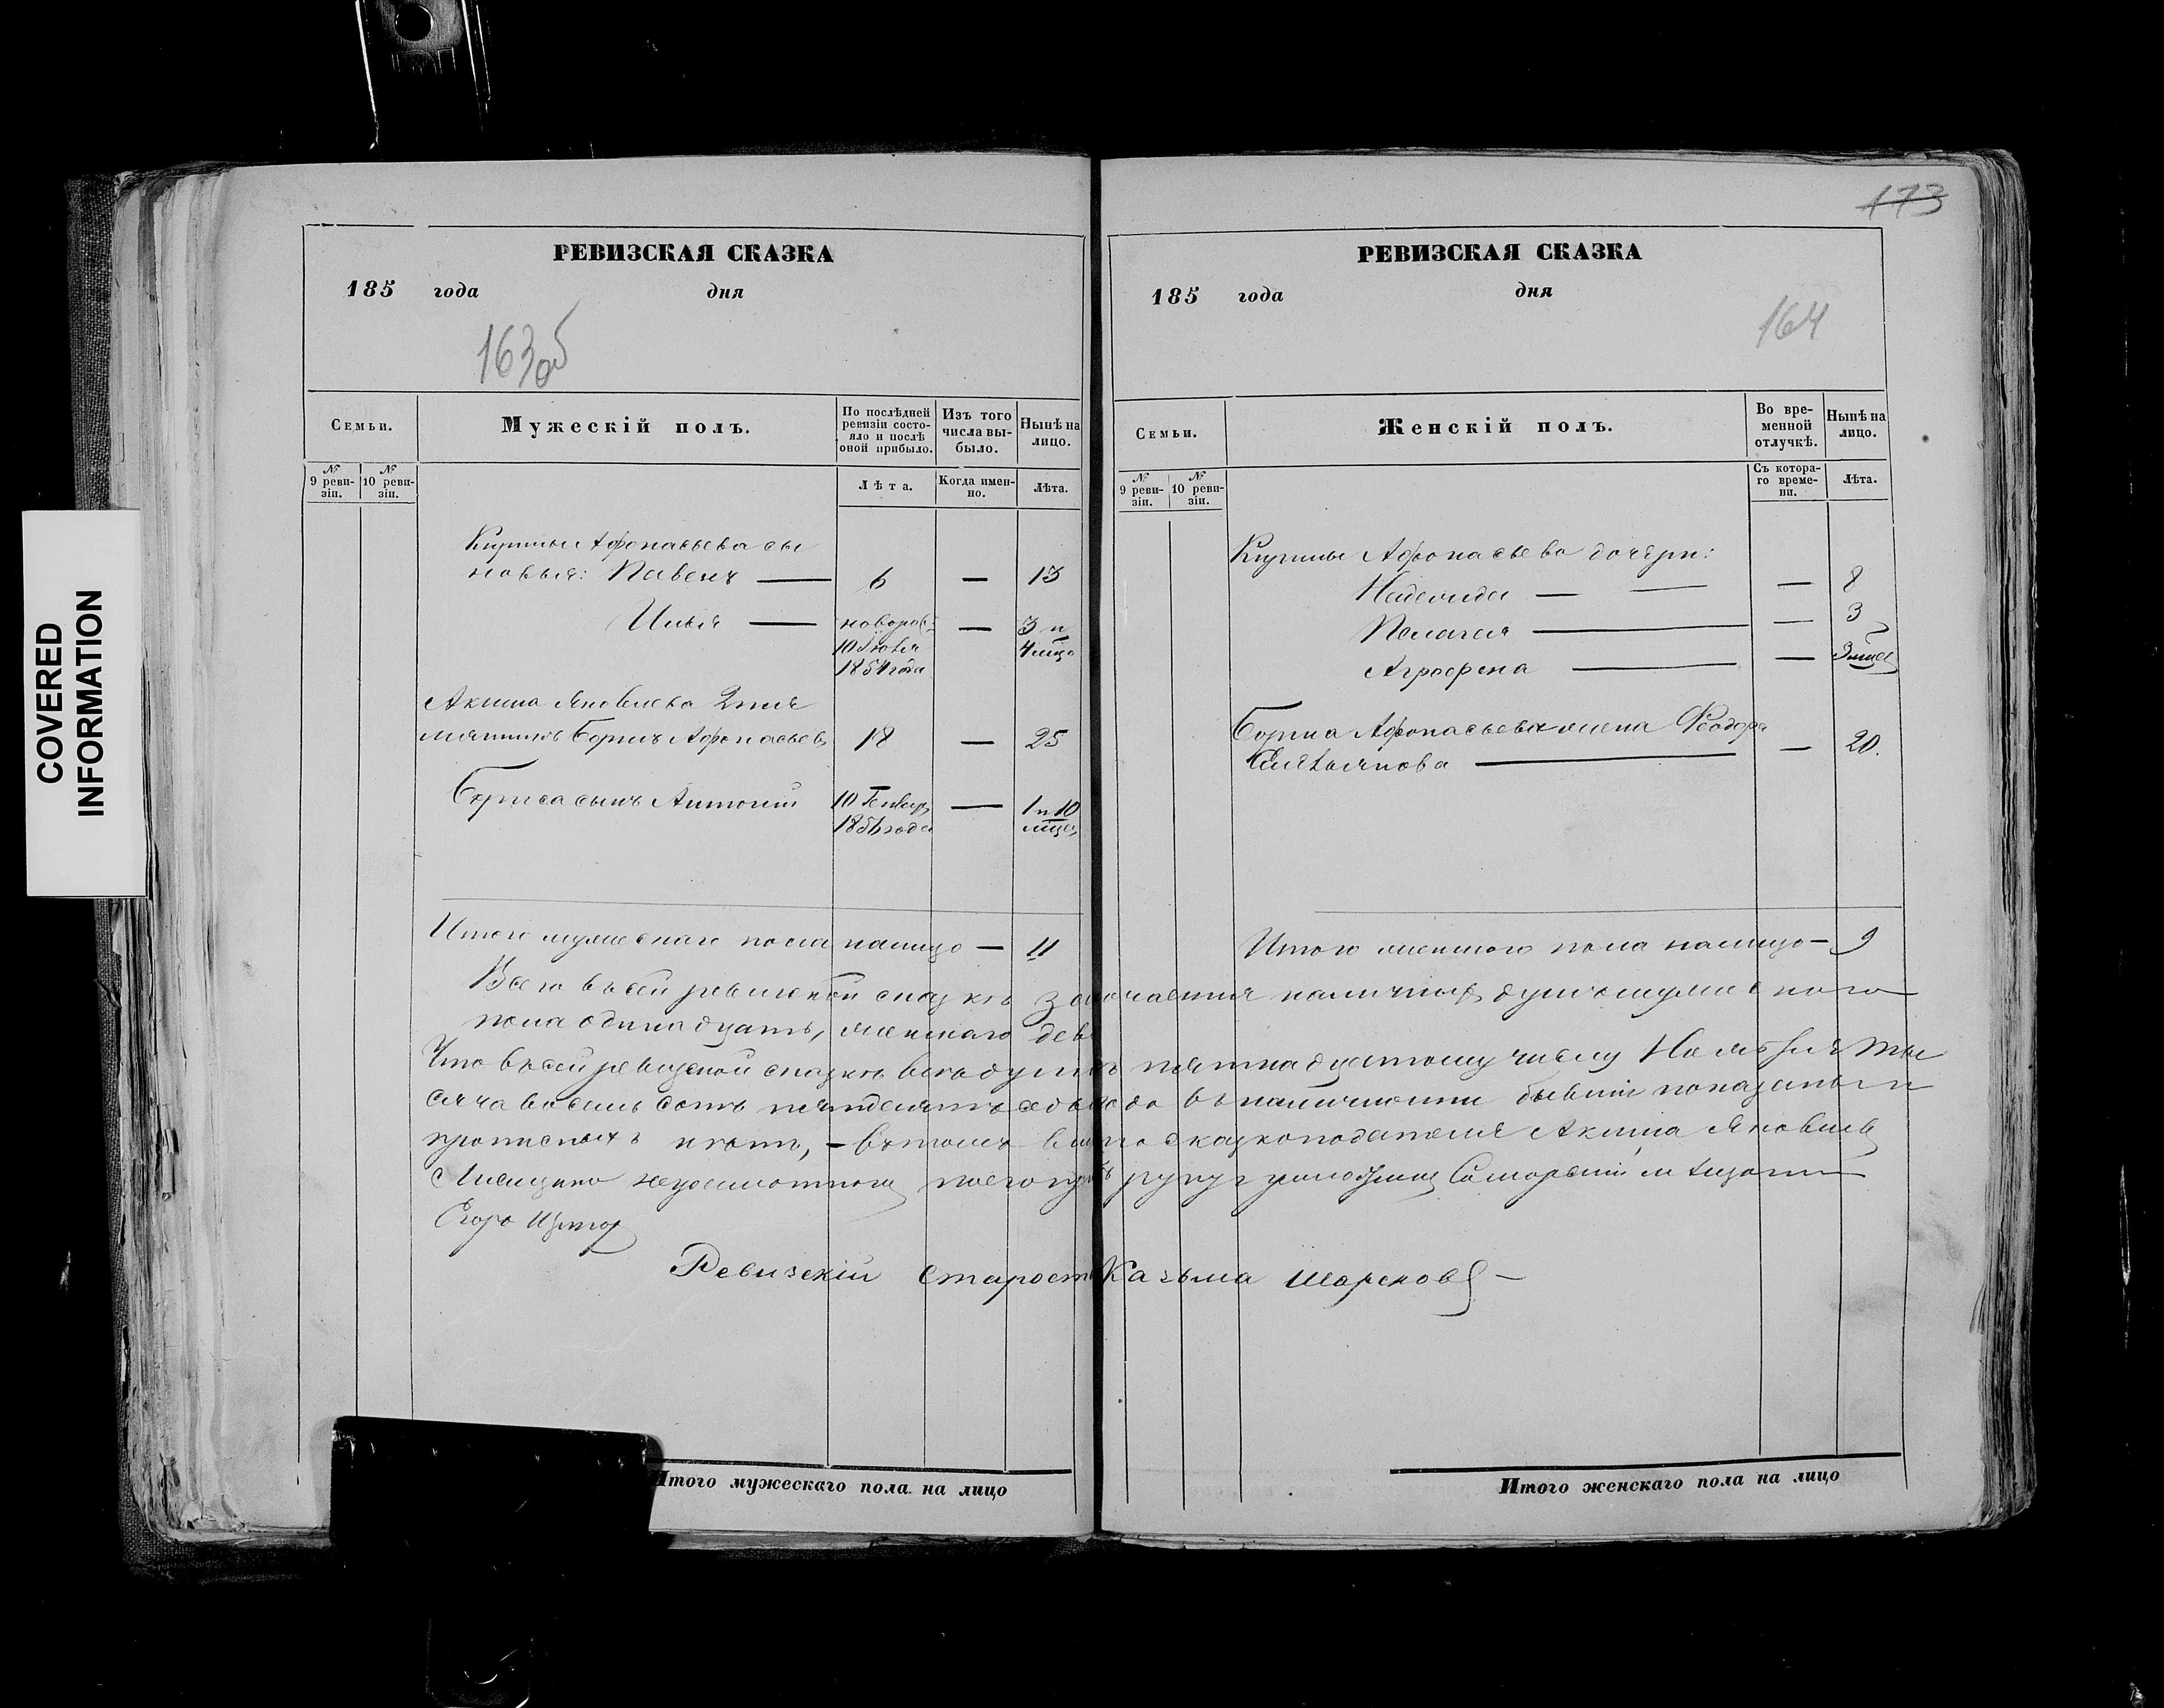 COVERED
INFORMATION
173
РЕВИЗСКАЯ СКАЗКА
185 года дня
163об
Семьи.
Мужескій полъ.
По послѣдней ревизіи состояло и послѣ оной прибыло.
Изъ того числа выбыло.
Нынѣ на лицо.
№ 9 ревизіи.
№ 10 ревизіи.
Лѣта.
Когда именно.
Лѣта.
Афонасьева сы
новья: Павелъ — 6 — 13
Илья — новорож: — 3 и
10 Іюля 4 мѣся
1854 года
Акима Яковлева 2 пле
мянникъ Борисъ Афонасьевъ 18 — 25
Бориса сынъ Антоній 10 Генвар — 1 и 10
1856 года мѣсец
Итого мужескаго пола налицо — 11
РЕВИЗСКАЯ СКАЗКА
185 года дня
164
Семьи.
Женскій полъ.
Во временной отлучкѣ.
Нынѣ на лицо.
№ 9 ревизіи.
№ 10 ревизіи.
Съ котораго времени.
Лѣта.
Афонасьева дочери:
— — — 8
Пелагея — — 3
Агрофена — — 3 мѣсе
Бориса Афонасьева жена Феодора
Емельянова — — 20.
Итого женского пола налицо — 9
Всего въ сей ревизской сказкѣ заключается наличныхъ душъ мужескаго
пола одинадцать, женскаго девя
Что въ сей ревизской сказкѣ всѣ души къ пятнадцатому числу Ноября Ты
сяча восемь сотъ пятдесятъ седьмого въ наличности бывшіи показаны и
прописныхъ нѣтъ, — въ томъ вмѣсто сказкоподателя Акима Яковлев
неграмотнаго по его прозьбѣ руку приложилъ
Егоръ
Ревизскій Старост Казьма
Итого мужескаго пола на лицо
Итого женскаго пола на лицо